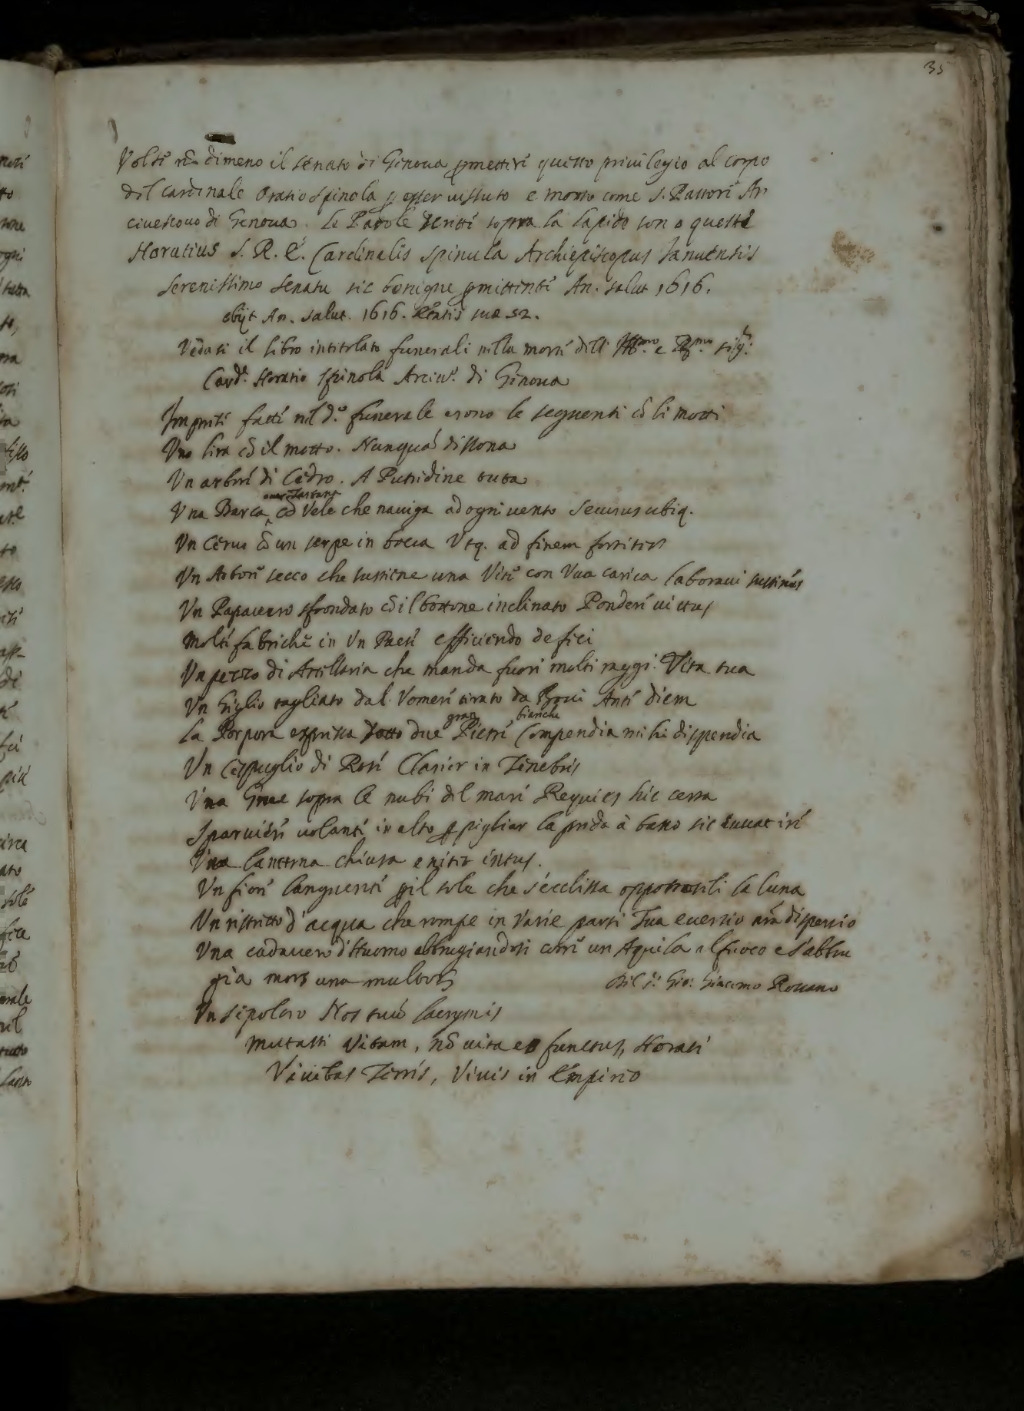 35
Volse nō dimeno il senato di Genova ꝑmettere questo privilegio al corpo
del cardinale Oratio Spinola ꝑ esser vissuto e morto come S. Pastore Ar-
civescovo di Genova. le Parole scritte sopra la lapide sono queste
Horatius S. R. E. Cardinalis Spinula Archiepiscopus Ianuensis
Serenissimo Senatu sic benigne ꝑmittente An. salut 1616.
obijt An. salut. 1616. Etatis suæ 52.
Vedasi il libro intitolato funerali nella morte dell' Illmo e Rmo sigr
Card. Horatio Spinola Arciv. di Genova
Imprese fatte nel do funerale erono le seguenti cō li motti
Una lira cō il motto. Nunquā dissona
Un arbore di Cedro. A Putridine tuta
Una Barca cō Vele che naviga ad ogni vento Securus ubiq.
Un Cervo cō un serpe in bocca Utq. ad finem fortiter
Un Arbore secco che sustiene una Vite con Uva carica laboravi sustinens
Un Papavero sfrondato cō il bottone inclinato Pondere victus
Molte fabriche in Un Paese efficiendo defeci
Un pezzo di Artillaria che manda fuori molti raggi Vita tua
Un Giglio tagliato dal Vomere tirato da Bovi Ante diem
gran bianche
la Porpora espressa sotto due Pietre Compendia mihi dispendia
Un Cespuglio di Rose Clarior in Tenebris
Una Grue sopra le nubi del mare Requies hic certa
Sparvieri volanti in alto ꝑ pigliar la preda à basso sic iuvat ire
Una lanterna chiusa enitir intus.
Un fiore languente ꝑ il sole che s'ecclissa oppostaseli la luna
Un ristretto d'acqua che rompe in varie parti Tua eversio nrā dispersio
Una cadavero d'huomo abbrugiandosi corre un Aquila al fuoco e s'abbru
gia mors una multos
Del Sr Gio: Giacomo Rossano
Un sipolcro Nos tuis lacrymis
Mutasti Vitam, nō vita es functus, Horati
Vivebas Terris, Vivis in Empireo